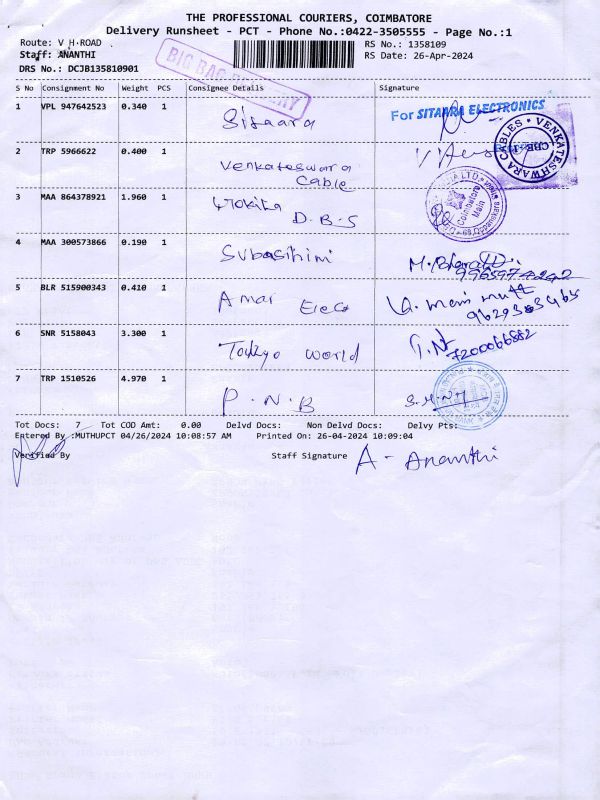 THE PROFESSIONAL COURIERS, COIMBATORE
Delivery Runsheet - PCT - Phone No.:0422-3505555 - Page No.:1
Route: V H-ROAD
RS No.: 1358109
Staff: ANANTHI
RS Date: 26-Apr-2024
DRS No.: DCJB135810901
BIG BAG DELIVERY
S No Consignment No Weight PCS Consignee Details Signature
1 VPL 947642523 0.340 1 Sitaara
For SITARA ELECTRONICS
VENKATESHWARA CABLES
CBE
2 TRP 5966622 0.400 1 Venkateswara
Cable
3 MAA 864378921 1.960 1 D.B.S
Coimbatore
Main
4 MAA 300573866 0.190 1 Subashini
5 BLR 515900343 0.410 1 Amar Elec
6 SNR 5158043 3.300 1 world
7200066882
7 TRP 1510526 4.970 1 P.N.B
Tot Docs: 7 Tot COD Amt: 0.00 Delvd Docs: Non Delvd Docs: Delvy Pts:
Entered By :MUTHUPCT 04/26/2024 10:08:57 AM Printed On: 26-04-2024 10:09:04
Verified By
Staff Signature A- Ananthi